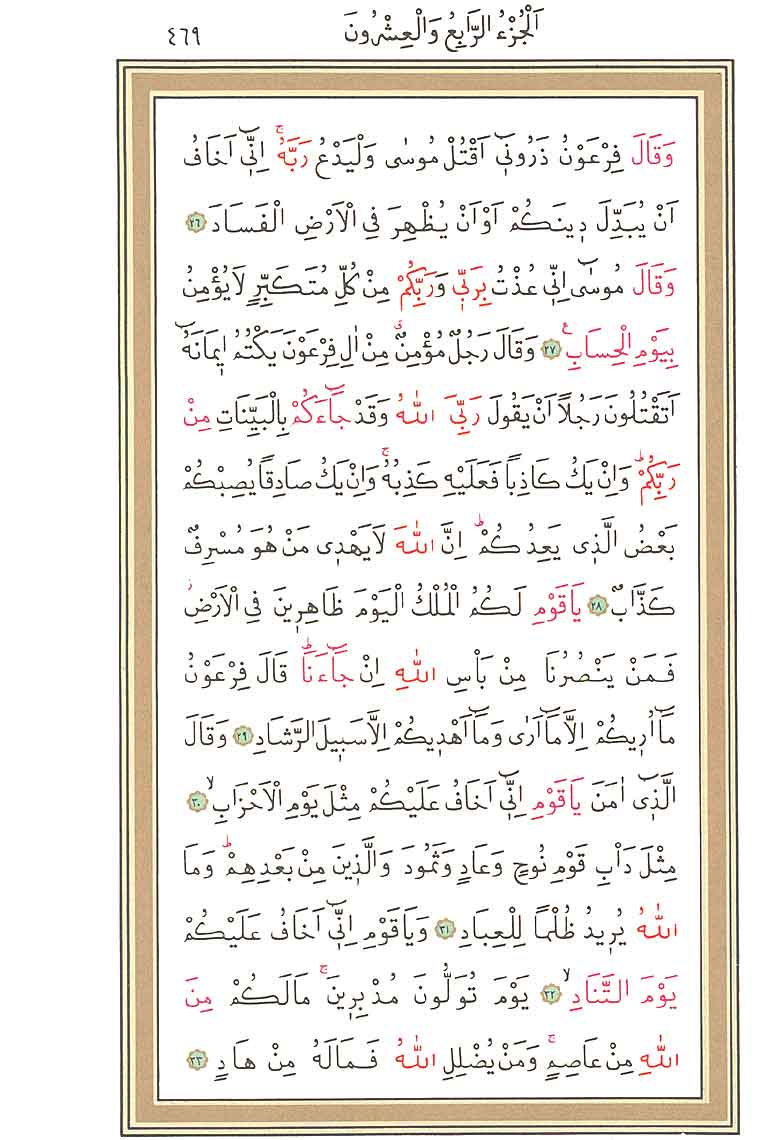 اَلْجُزْءُ الرَّابِعُ وَالْعِشْرُونَ ٤٦٩
وَقَالَ فِرْعَوْنُ ذَرُونٖٓي اَقْتُلْ مُوسٰى وَلْيَدْعُ رَبَّهُۚ اِنّٖٓي اَخَافُ
اَنْ يُبَدِّلَ دٖينَكُمْ اَوْ اَنْ يُظْهِرَ فِي الْاَرْضِ الْفَسَادَ ٢٦
وَقَالَ مُوسٰٓى اِنّٖي عُذْتُ بِرَبّٖي وَرَبِّكُمْ مِنْ كُلِّ مُتَكَبِّرٍ لَا يُؤْمِنُ
بِيَوْمِ الْحِسَابِࣖ ٢٧ وَقَالَ رَجُلٌ مُؤْمِنٌۗ مِنْ اٰلِ فِرْعَوْنَ يَكْتُمُ اٖيمَانَهُٓ
اَتَقْتُلُونَ رَجُلًا اَنْ يَقُولَ رَبِّيَ اللّٰهُ وَقَدْ جَٓاءَكُمْ بِالْبَيِّنَاتِ مِنْ
رَبِّكُمْؕ وَاِنْ يَكُ كَاذِبًا فَعَلَيْهِ كَذِبُهُۚ وَاِنْ يَكُ صَادِقًا يُصِبْكُمْ
بَعْضُ الَّذٖي يَعِدُكُمْؕ اِنَّ اللّٰهَ لَا يَهْدٖي مَنْ هُوَ مُسْرِفٌ
كَذَّابٌ ٢٨ يَا قَوْمِ لَكُمُ الْمُلْكُ الْيَوْمَ ظَاهِرٖينَ فِي الْاَرْضِؗ
فَمَنْ يَنْصُرُنَا مِنْ بَاْسِ اللّٰهِ اِنْ جَٓاءَنَاؕ قَالَ فِرْعَوْنُ
مَٓا اُرٖيكُمْ اِلَّا مَٓا اَرٰى وَمَٓا اَهْدٖيكُمْ اِلَّا سَبٖيلَ الرَّشَادِ ٢٩ وَقَالَ
الَّذٖٓي اٰمَنَ يَا قَوْمِ اِنّٖٓي اَخَافُ عَلَيْكُمْ مِثْلَ يَوْمِ الْاَحْزَابِۙ ٣٠
مِثْلَ دَاْبِ قَوْمِ نُوحٍ وَعَادٍ وَثَمُودَ وَالَّذٖينَ مِنْ بَعْدِهِمْؕ وَمَا
اللّٰهُ يُرٖيدُ ظُلْمًا لِلْعِبَادِ ٣١ وَيَا قَوْمِ اِنّٖٓي اَخَافُ عَلَيْكُمْ
يَوْمَ التَّنَادِۙ ٣٢ يَوْمَ تُوَلُّونَ مُدْبِرٖينَۚ مَا لَكُمْ مِنَ
اللّٰهِ مِنْ عَاصِمٍۚ وَمَنْ يُضْلِلِ اللّٰهُ فَمَا لَهُ مِنْ هَادٍ ٣٣